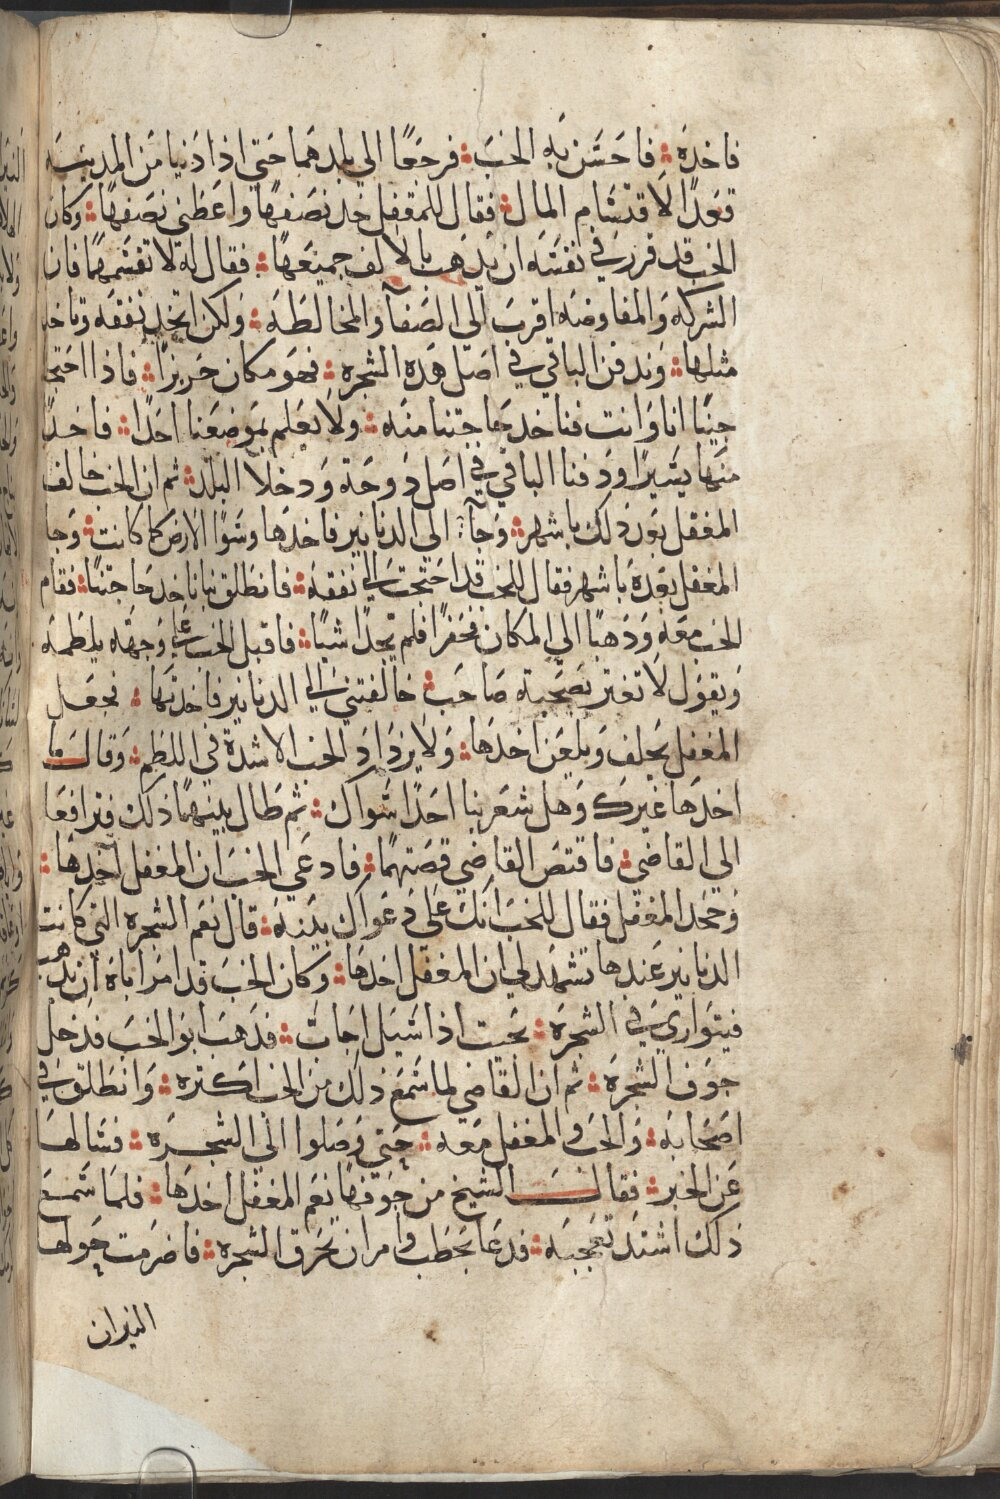 فاخده فاحسن به الخب فرجعا الي بلدهما حتي اذا دنيا من المدينه
قعدا لاقتسام المال فقال المغفل خد نصفها واعطني نصفها وكان
الخب قد قرر في نفسه ان يدهب بالالف جميعها فقال له لا تقسمها فان
الشركه والمفاوضه اقرب الي الصفا والمخالطه ولكن اتخد نفقه وتاخد
مثلها وندفن الباقي في اصل هده الشجره فهو مكان حريزا فاذا احتجنا
جينا انا وانت فناخد حاجتنا منه ولا يعلم بموضعنا احدا فاخدا
منها يسيرا ودفنا الباقي في اصل دوحة ودخلا البلد ثم ان الخب خالف
المغفل بعد ذلك باشهر وجآ الي الدنانير فاخدها وسوا الارض كما كانت وجا
المغفل بعده باشهر فقال للخب قد احتجت الي نفقه فانطلق بنا ناخد حاجتنا فقام
الخب معه ودهبا الي المكان فحفرا فلم يجدا شيا فاقبل الخب علي وجهه يلطمه
ويقول لا تغتر بصحبة صاحب خالفتني الي الدنانير فاخدتها فجعل
المغفل يحلف ويلعن اخدها ولا يزداد الخب الا شدة في اللطم وقال ما
اخدها غيرك وهل شعر بنا احدا سواك ثم طال بينهما ذلك فترافعا
الي القاضي فاقتص القاضي قصتهما فادعي الخب ان المغفل اخدها
وجحد المغفل فقال للخب انك علي دعواك بينة قال نعم الشجره التي كانت
الدنانير عندها تشهد لي ان المغفل اخدها وكان الخب قد امر اباه ان يدهب
فيتواري في الشجره بحيث اذا سيل اجاب فدهب ابو الخب فدخل
جوف الشجره ثم ان القاضي لما سمع ذلك من الخب اكتره وانطلق في
اصحابه والخب والمغفل معه حتي وصلوا الي الشجره فسالها
عن الخبر فقال الشيخ من جوفها نعم المغفل اخدها فلما سمع
ذلك اشتد تعجبه فدعا بحطب وامر ان تحرق الشجره فاضرمت حولها
النيران